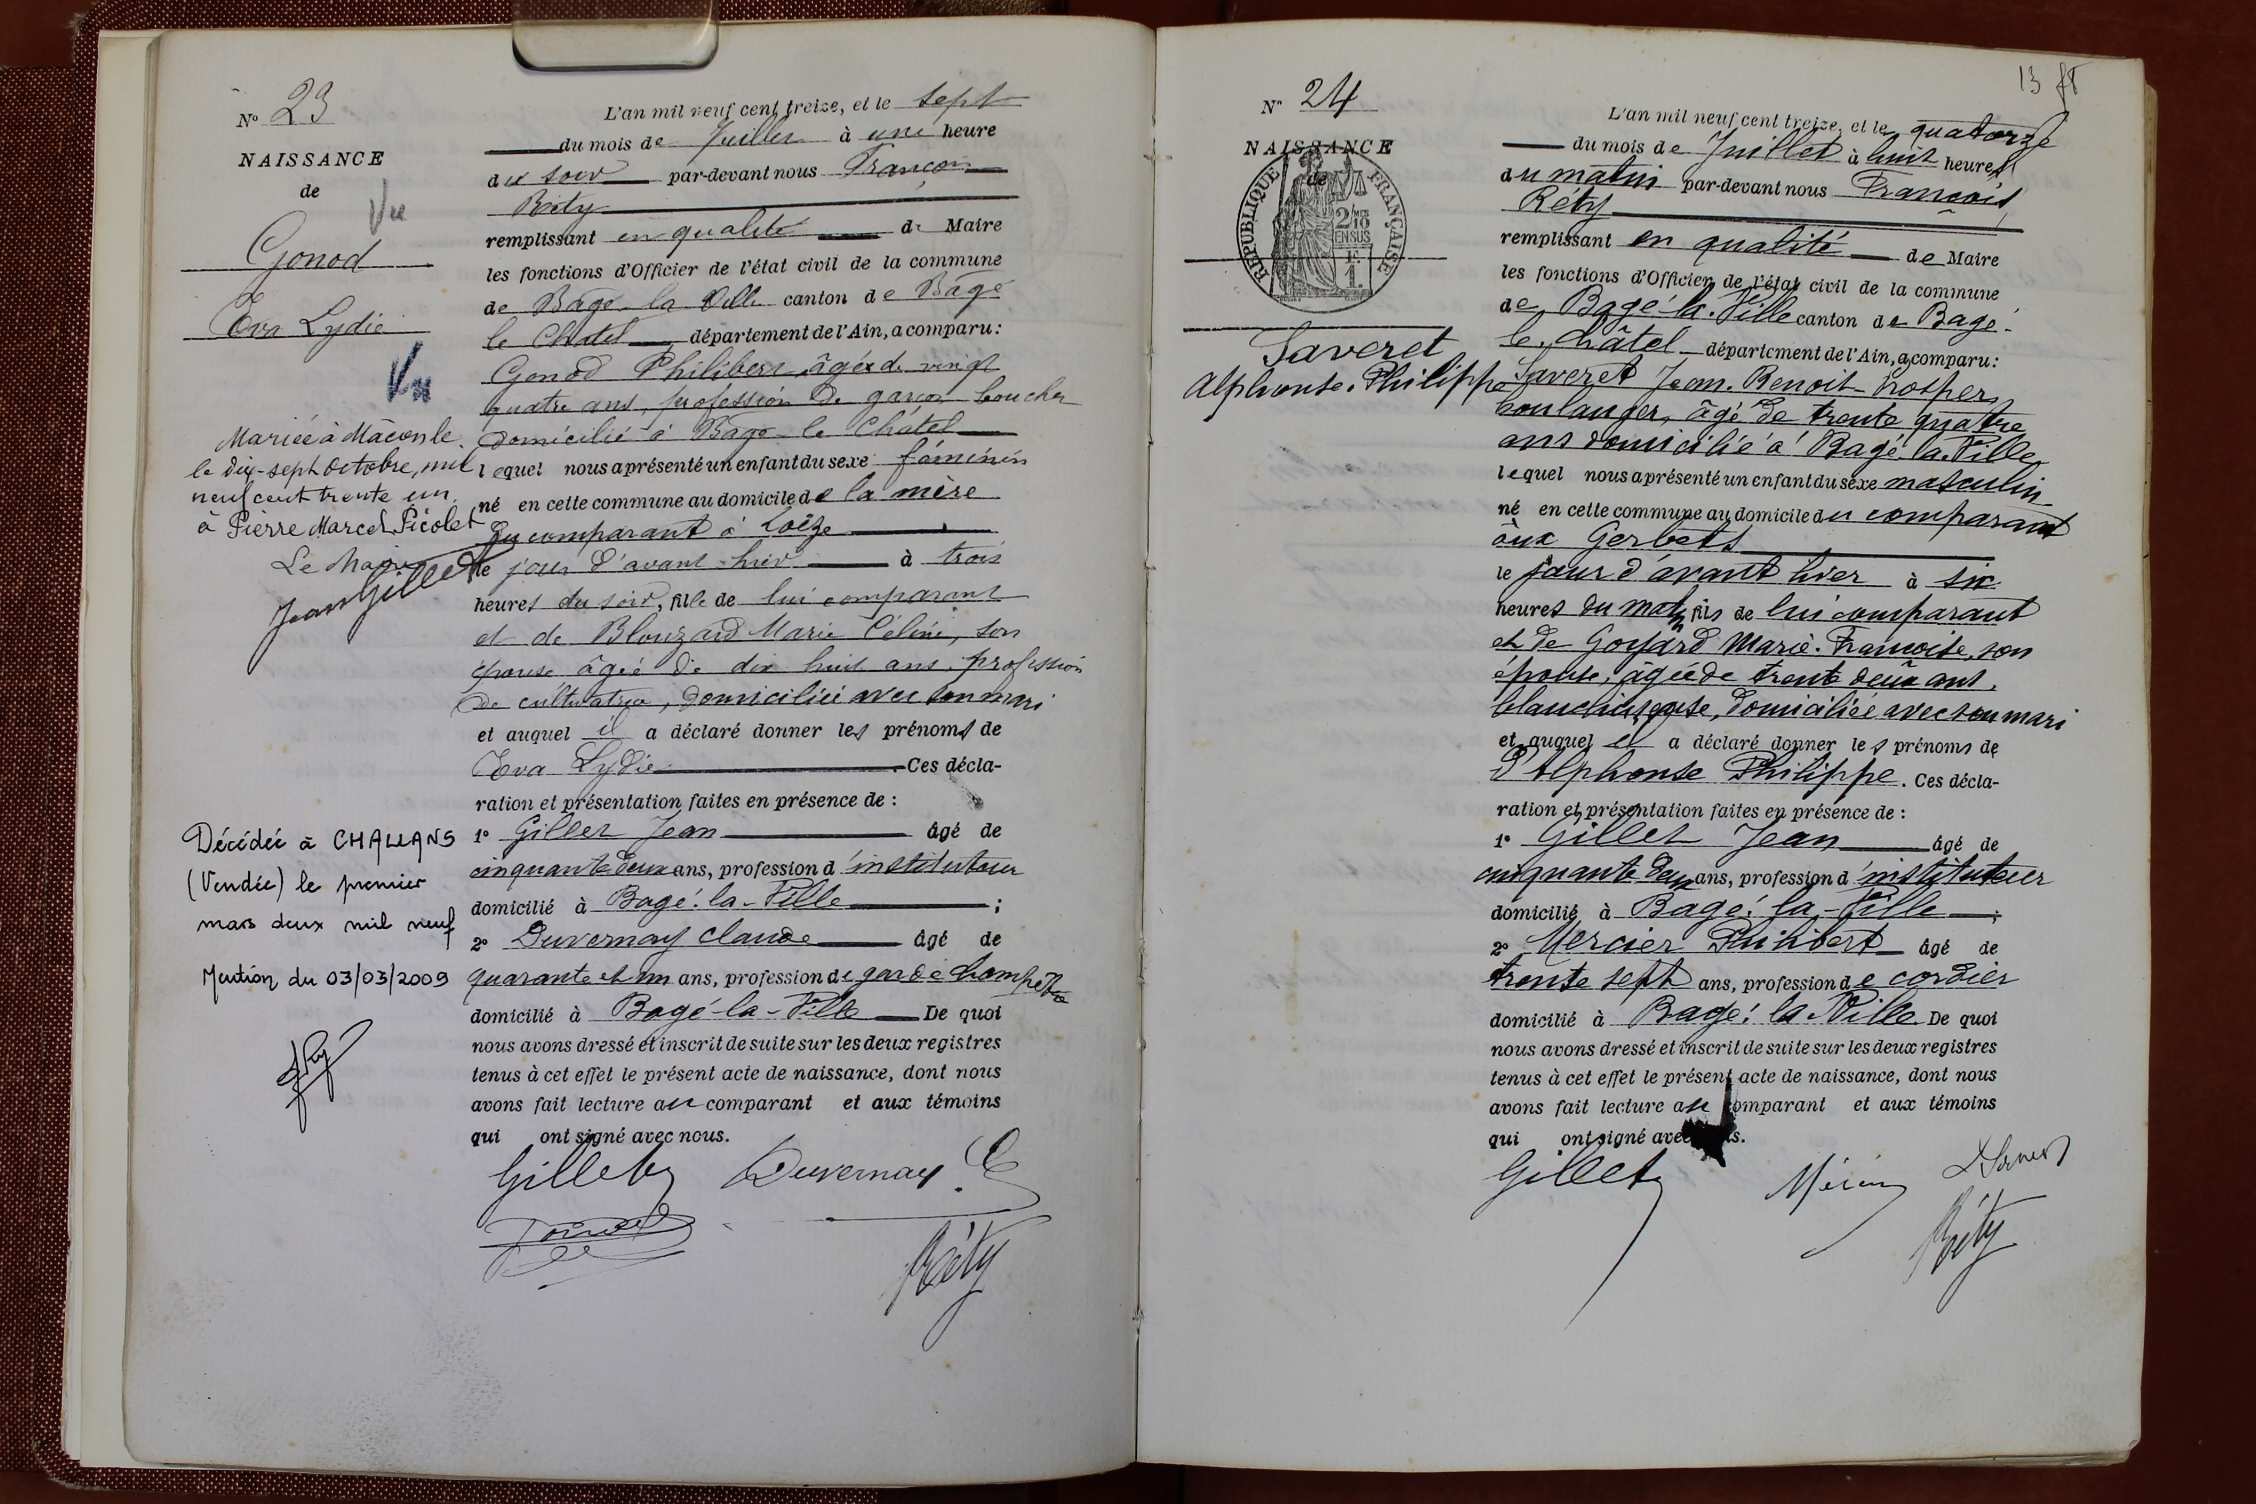 Nº 23
NAISSANCE
de
Vu
Gonod
Eva Lydie
Vu
Mariée à Mâcon le
le dix-sept octobre, mil
neuf cent trente un
à Pierre Marcel Picolet
Le Maire
Jean Gillet
Décédée à CHALLANS
(Vendée) le premier
mars deux mil neuf
Mention du 03/03/2009
L'an mil neuf cent treize, et le sept
du mois de Juillet à une heure
du soir par-devant nous François
Réty
remplissant en qualité de Maire
les fonctions d'Officier de l'état civil de la commune
de Bagé-la-Ville canton de Bagé
le Châtel, département de l'Ain, a comparu:
Gonod Philibert, âgé de vingt
quatre ans, profession de garçon boucher
domicilié à Bagé-le Châtel
lequel nous a présenté un enfant du sexe féminin
né en cette commune au domicile de la mère
du comparant à Loëze
le jour d'avant-hier à trois
heures du soir, fille de lui comparant
et de Blouzard Marie Céline, son
épouse âgée de dix huit ans, profession
de cultivatrice, domiciliée avec son mari
et auquel il a déclaré donner les prénoms de
Eva Lydie. Ces décla-
ration et présentation faites en présence de :
1º Gillet Jean âgé de
cinquante deux ans, profession d'instituteur
domicilié à Bagé-la-Ville ;
2º Duvernay Claude âgé de
quarante et un ans, profession de garde champêtre
domicilié à Bagé-la-Ville De quoi
nous avons dressé et inscrit de suite sur les deux registres
tenus à cet effet le présent acte de naissance, dont nous
avons fait lecture au comparant et aux témoins
qui ont signé avec nous.
Gillet Duvernay C
Gonod
Réty
13
Nº 24
NAISSANCE
de
RÉPUBLIQUE FRANÇAISE
2/10 EN SUS
Saveret
Alphonse-Philippe
L'an mil neuf cent treize, et le quatorze
du mois de Juillet à huit heures
du matin par-devant nous François
Réty
remplissant en qualité de Maire
les fonctions d'Officier de l'état civil de la commune
de Bagé-la-Ville canton de Bagé-
le-Châtel département de l'Ain, a comparu:
Saveret Jean-Benoit-Prosper,
boulanger, âgé de trente quatre
ans domicilié à Bagé-la-Ville
lequel nous a présenté un enfant du sexe masculin
né en cette commune au domicile du comparant
aux Gerbets
le jour d'avant hier à six
heures du matin fils de lui comparant
et de Goyard Marie-Françoise, son
épouse, âgée de trente deux ans,
blanchisseuse, domiciliée avec son mari
et auquel il a déclaré donner les prénoms de
d'Alphonse Philippe. Ces décla-
ration et présentation faites en présence de :
1º Gillet Jean âgé de
cinquante deux ans, profession d'instituteur
domicilié à Bagé-la-Ville ;
2º Mercier Philibert âgé de
trente sept ans, profession de cordier
domicilié à Bagé-la-Ville De quoi
nous avons dressé et inscrit de suite sur les deux registres
tenus à cet effet le présent acte de naissance, dont nous
avons fait lecture au comparant et aux témoins
qui ont signé avec nous.
Gillet
Réty